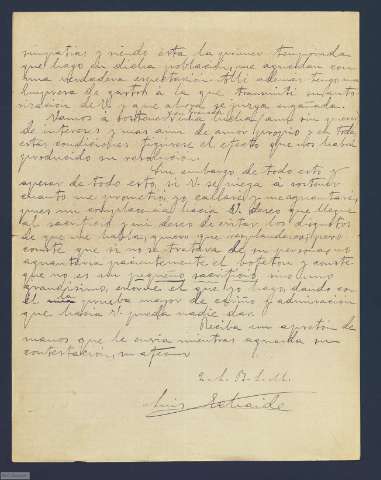 simpatias y siendo esta la primer temporada
que hago en dicha población, me aguardan con
una verdadera espectación. Alli ademas tengo una
Empresa de gastos á la que transmiti
de V. y que ahora se juzga engañada.
Vamos á sostener una lucha, aun sin
de interes y mas aun de amor propio y en
estas condiciones figurese el efecto que nos habrá
producido su resolución.
Sin embargo de todo esto y
apesar de todo esto, si V. se niega a sostener
cuanto me prometió, yo callaré y me aguantaré,
pues mi complacencia hacia V. deseo que llegue
al sacrificio y mi deseo de evitar los disgustos
de que me habla, quiero que resplandezca, pero
conste que si no se tratara de su persona no
aguantaria pacientemente el bofeton y conste
que no es un pequeño sacrificio, sino uno
grandisimo, enorme el que yo hago, dando con
el la prueba mayor de cariño y admiracion
que hacia V. pueda nadie dar.
Reciba un apretón de
manos que le envia mientras aguarda su
contestación, su afmo
Luis Echaide